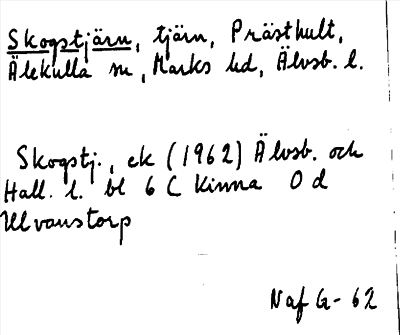 Skogstjärn, tjärn, Prästhult,
Älekulla sn, Marks hd, Älvsb. l.
Skogstj., ek (1962) Älvsb. och
Hall. l. bl 6 C Kinna 0 d
Ulvanstorp
Naf G- 62